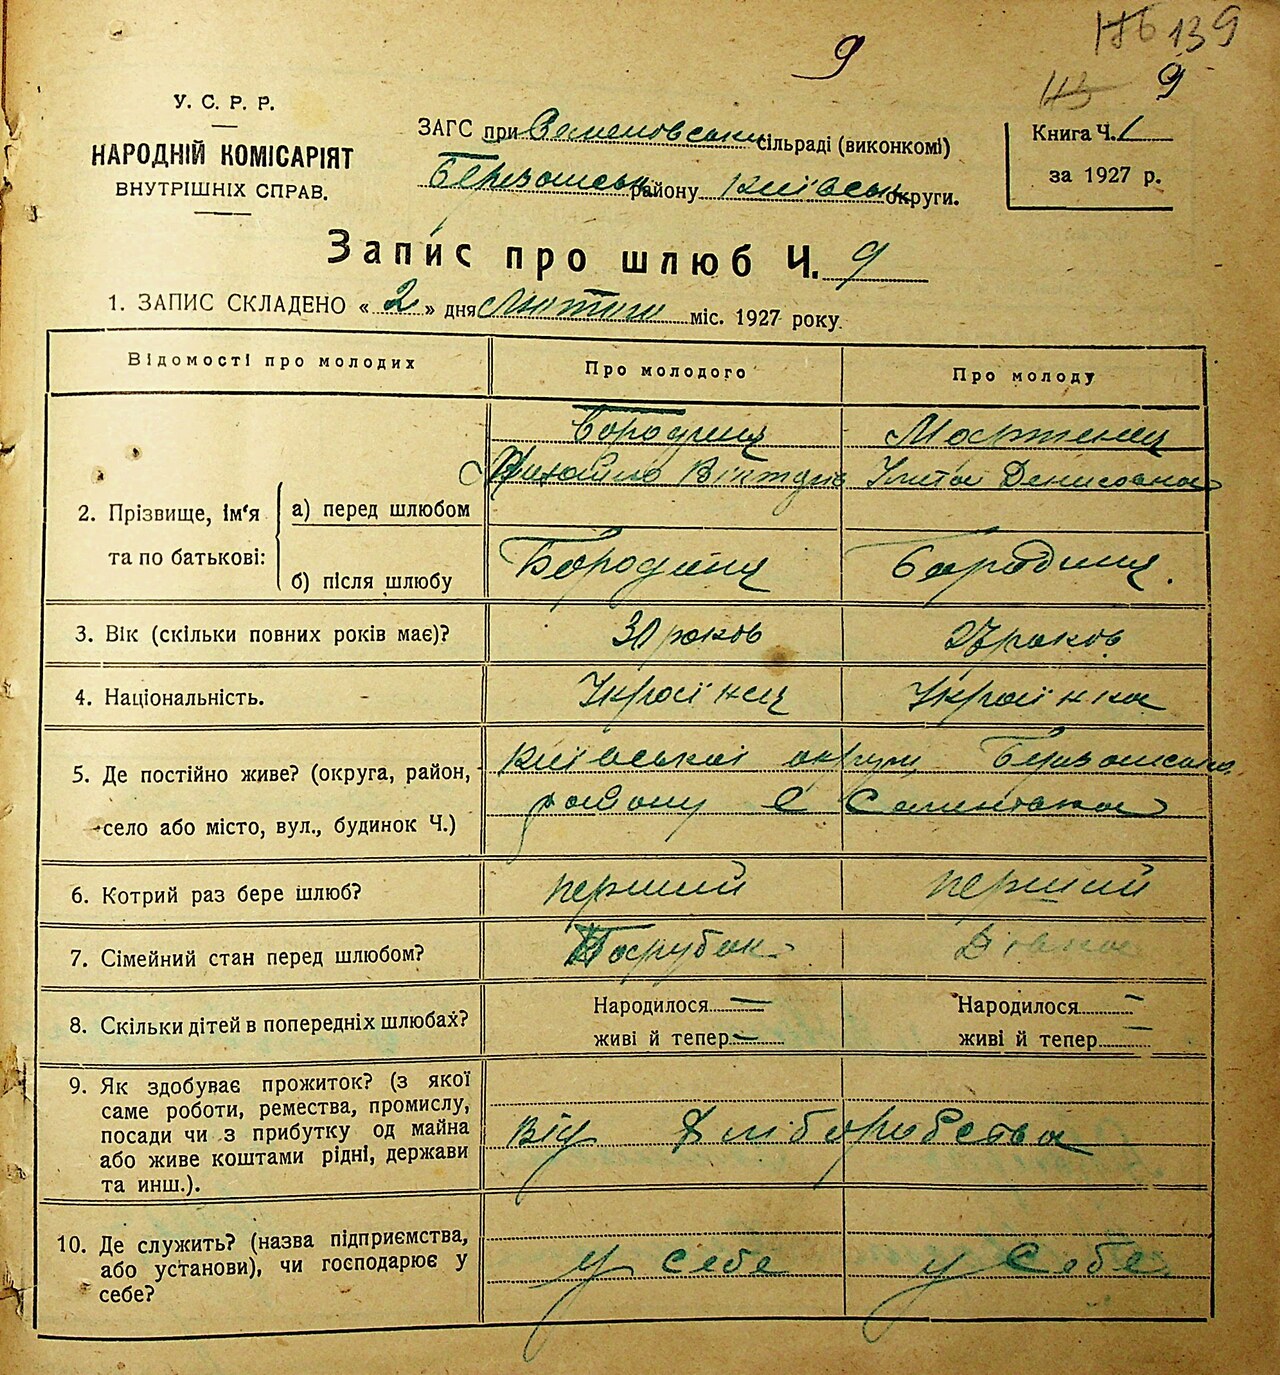 9
139
9
У. С. Р. Р.
НАРОДНІЙ КОМІСАРІЯТ
ВНУТРІШНІХ СПРАВ.
ЗАГС при Семеновськи сільраді (виконкомі)
району Київськ округи.
Книга Ч. 1
за 1927 р.
Запис про шлюб Ч. 9
1. ЗАПИС СКЛАДЕНО « 2 » дня Лютого міс. 1927 року
Відомості про молодих
Про молодого
Про молоду
2. Прізвище, ім'я та по батькові:
а) перед шлюбом
Бородинь
Михайло
Мартенец
Улита Денисовна
б) після шлюбу
Бородиня
Бородиня.
3. Вік (скільки повних років має)?
30 роков
27 роков
4. Національність.
Українец
Українка
5. Де постійно живе? (округа, район,
село або місто, вул., будинок Ч.)
Київськоі округи
району С Семеновка
6. Котрий раз бере шлюб?
перший
перший
7. Сімейний стан перед шлюбом?
Парубок
Дівка
8. Скільки дітей в попередніх шлюбах?
Народилося —
живі й тепер —
Народилося —
живі й тепер —
9. Як здобуває прожиток? (з якої
саме роботи, ремества, промислу,
посади чи з прибутку од майна
або живе коштами рідні, держави
та инш.).
Від Хліборобства
10. Де служить? (назва підприємства,
або установи), чи господарює у
себе?
у себе
у себе